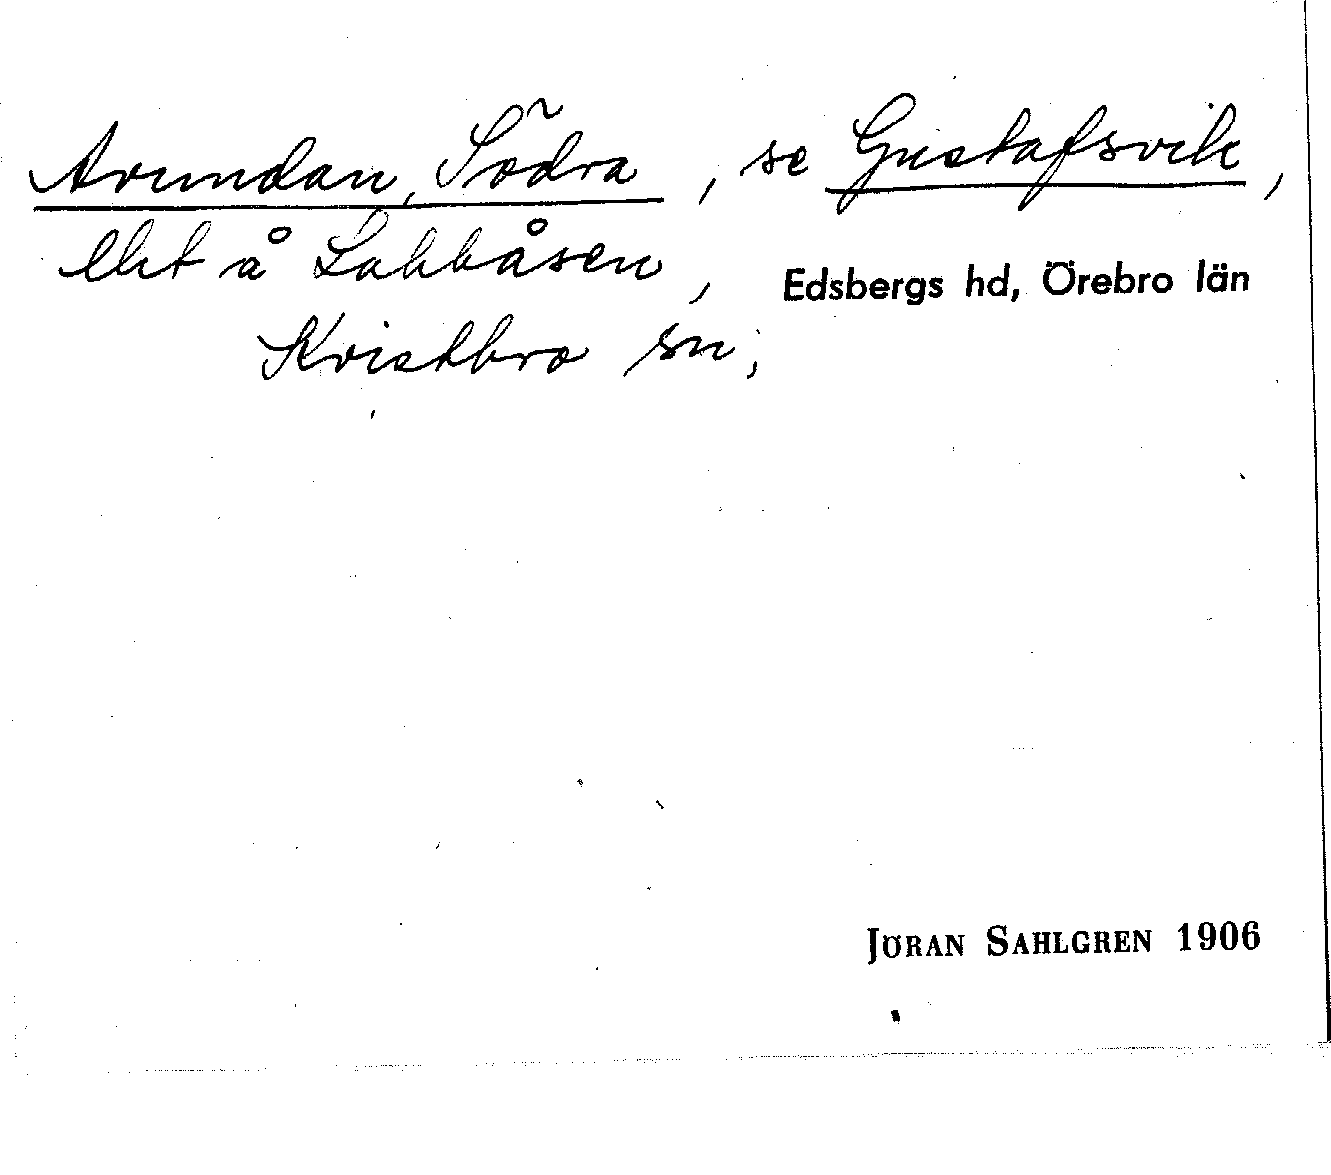 Avundan, Södra, se Gustafsvik,
lht å Labbåsen, Edsbergs hd, Örebro län
Kvistbro sn;
JÖRAN SAHLGREN 1906